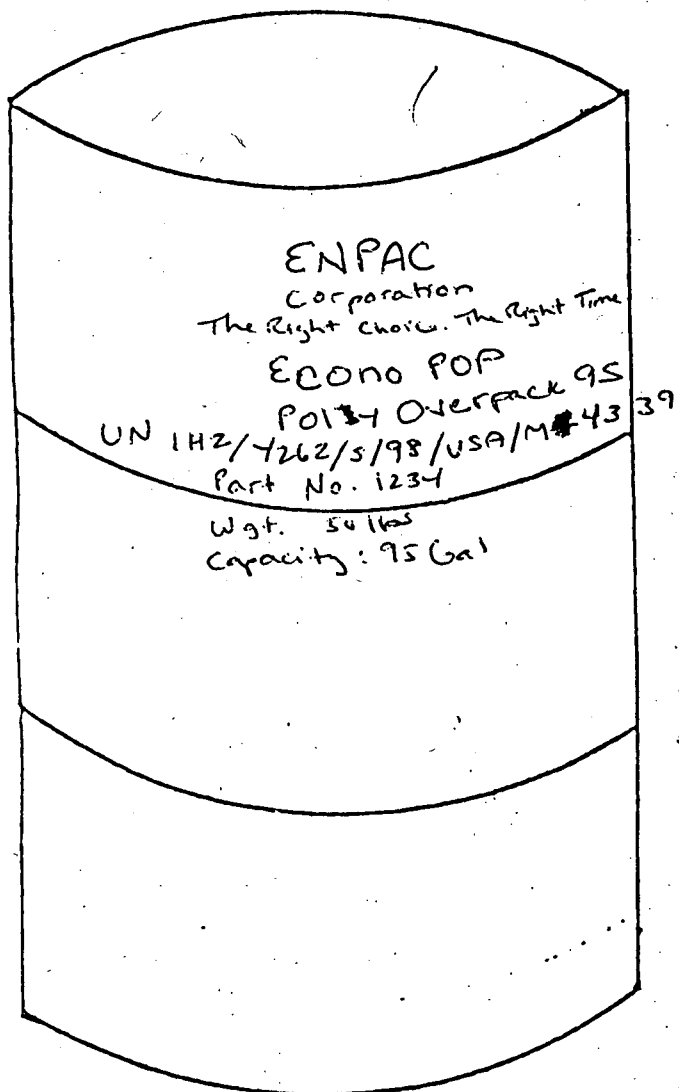 ENPAC
Corporation
The Right Choice. The Right Time
Econo POP
Poly Overpack 95
UN 1H2/Y262/S/98/USA/M4339
Part No. 1234
Wgt. 54 lbs
Capacity: 95 Gal